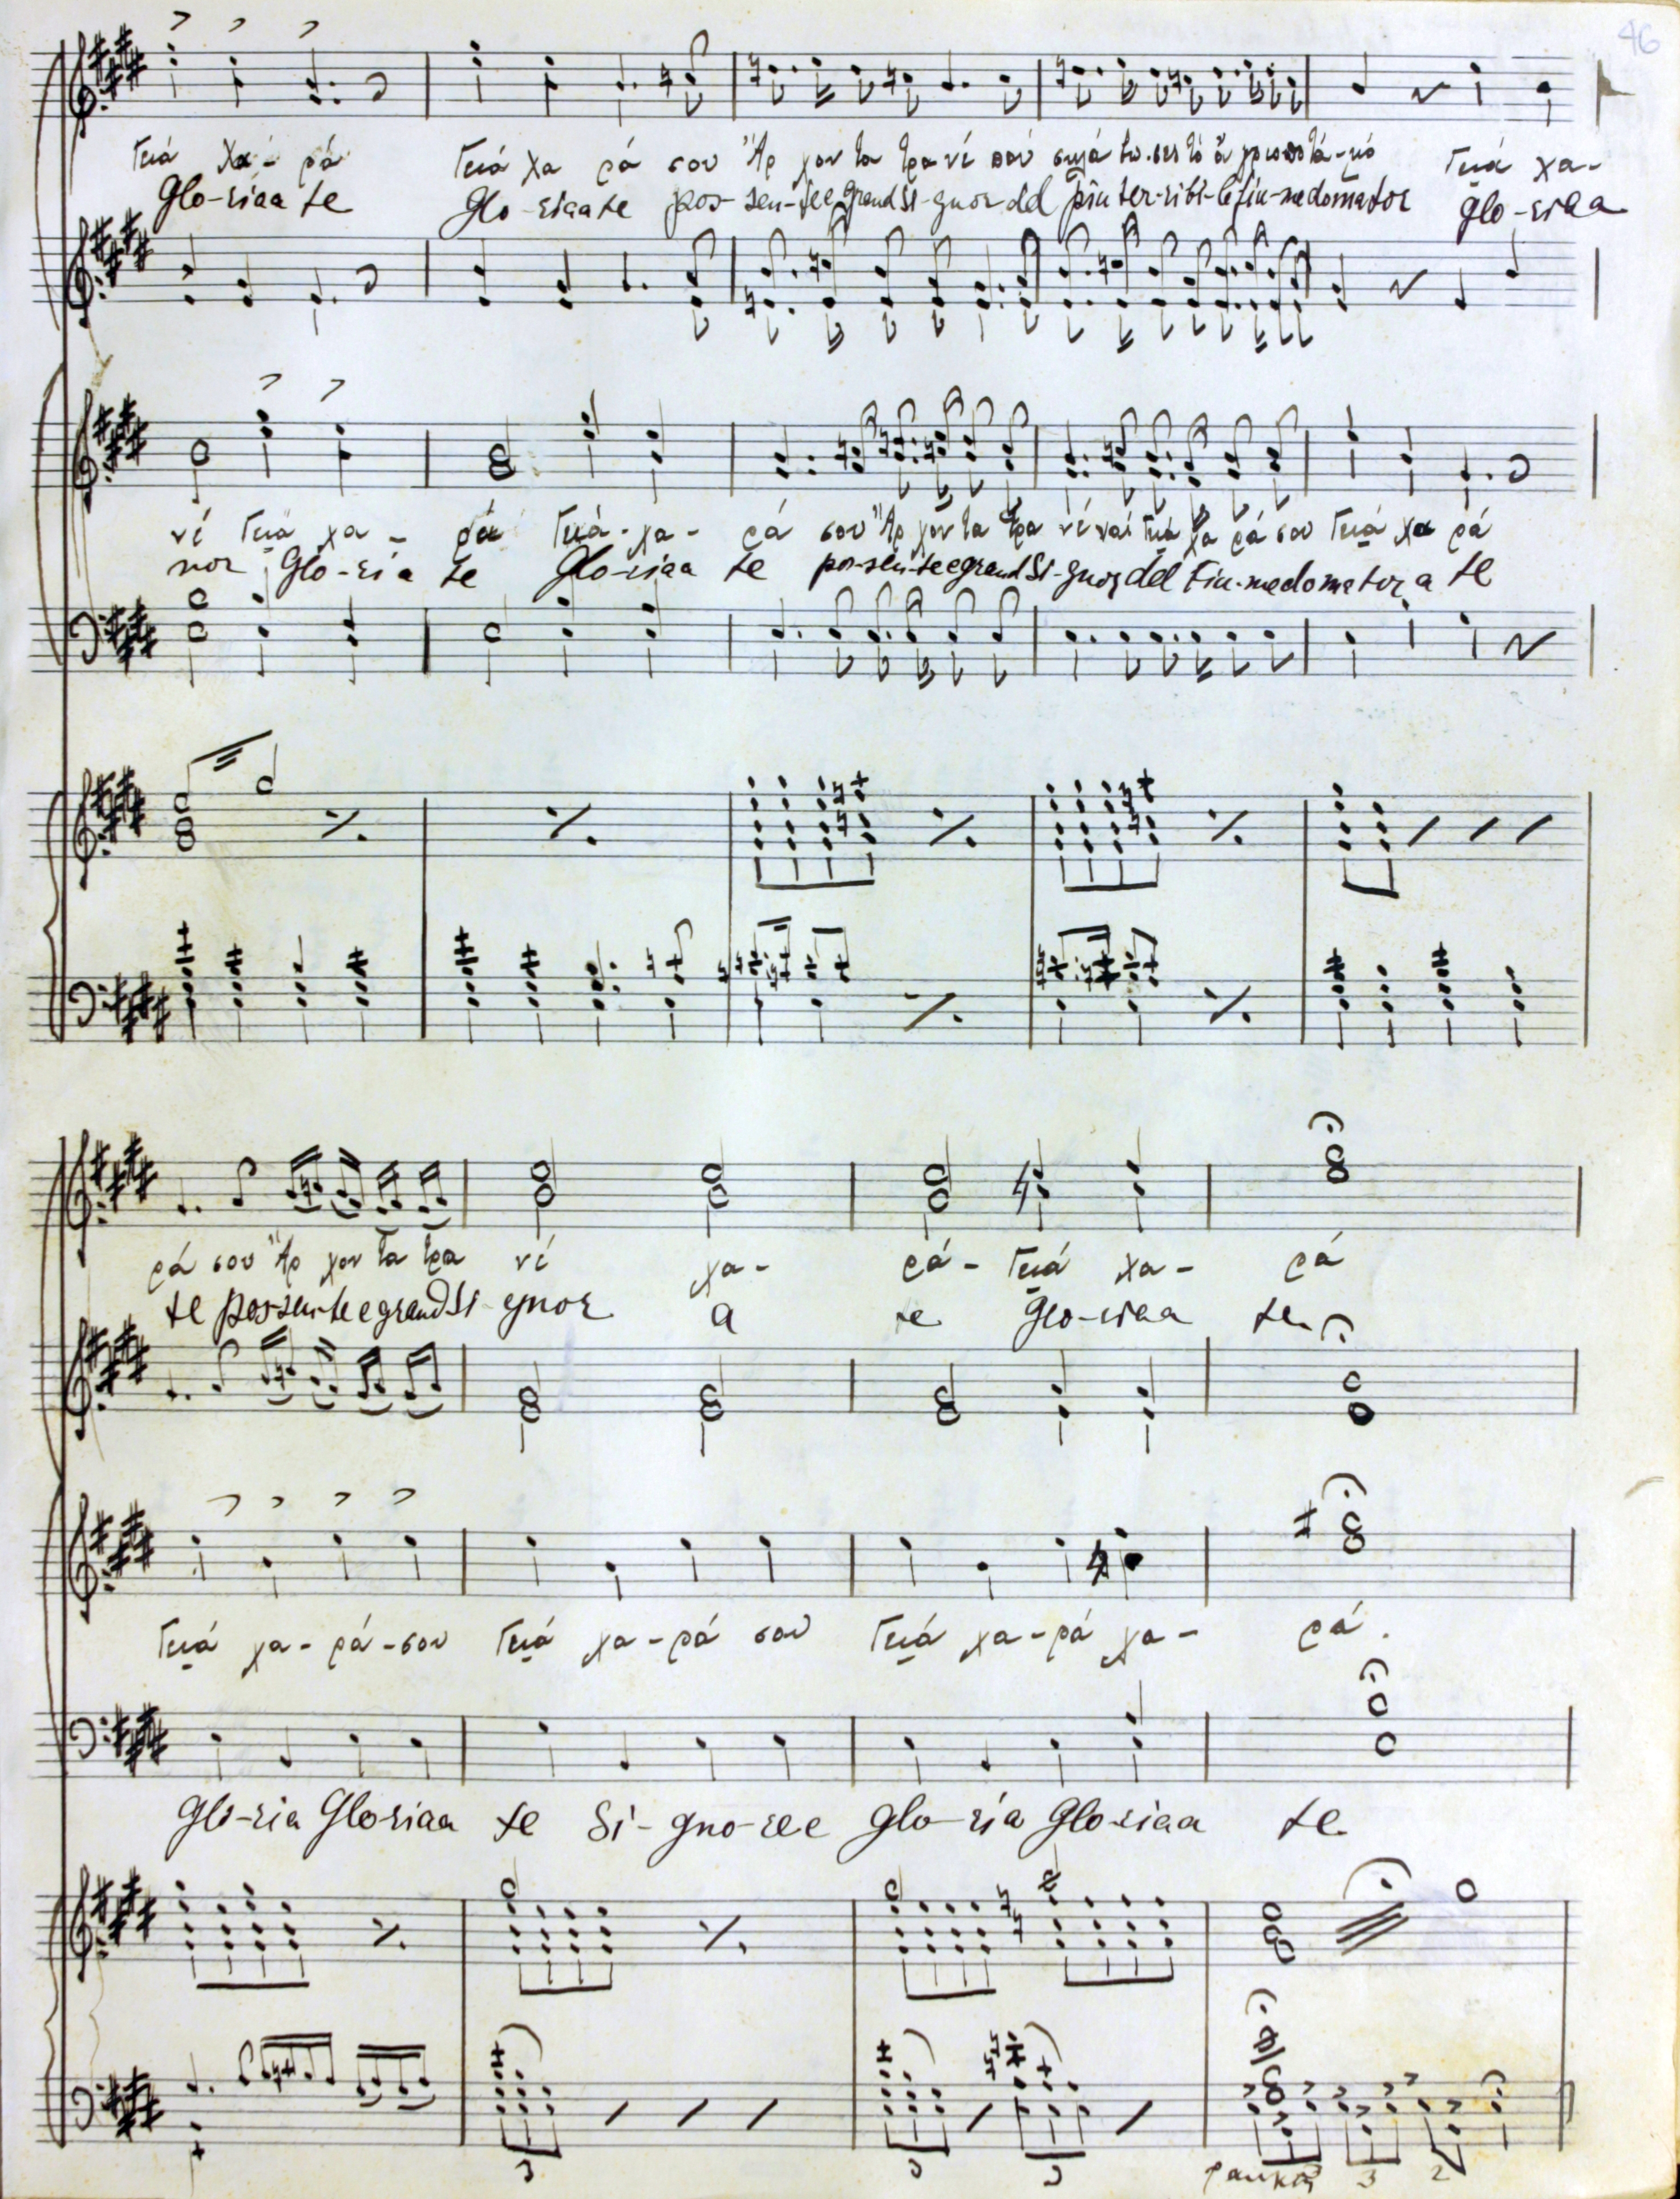 46
Γειά χα - ρά Γειά χα ρά σου Ἄρ χον τα τρα νέ που Γειά χα-
Glo-riaa te Glo-riaa te pos-sen-te e grand Si-gnor del piu ter-ri-bi-le fiu-me domator glo-riaa
νέ Γειά χα - ρά Γειά - χα - ρά σου Ἄρ χον τα τρα νέ ναί Γειά χα ρά σου Γειά χα ρά
nor Glo-ria te Glo-riaa te pos-sen-te e grand Si-gnor del Fiu-me domator a te
ρά σου Ἄρ χον τα τρα νέ χα- ρά- Γειά χα- ρά
te pos-sen-te e grand Si-gnor a te Glo-riaa te
Γειά χα-ρά-σου Γειά χα-ρά σου Γειά χα-ρά χα- ρά.
Glo-ria Gloriaa te Si-gno-re e Glo-ria Gloriaa te
3 3 3 3 2